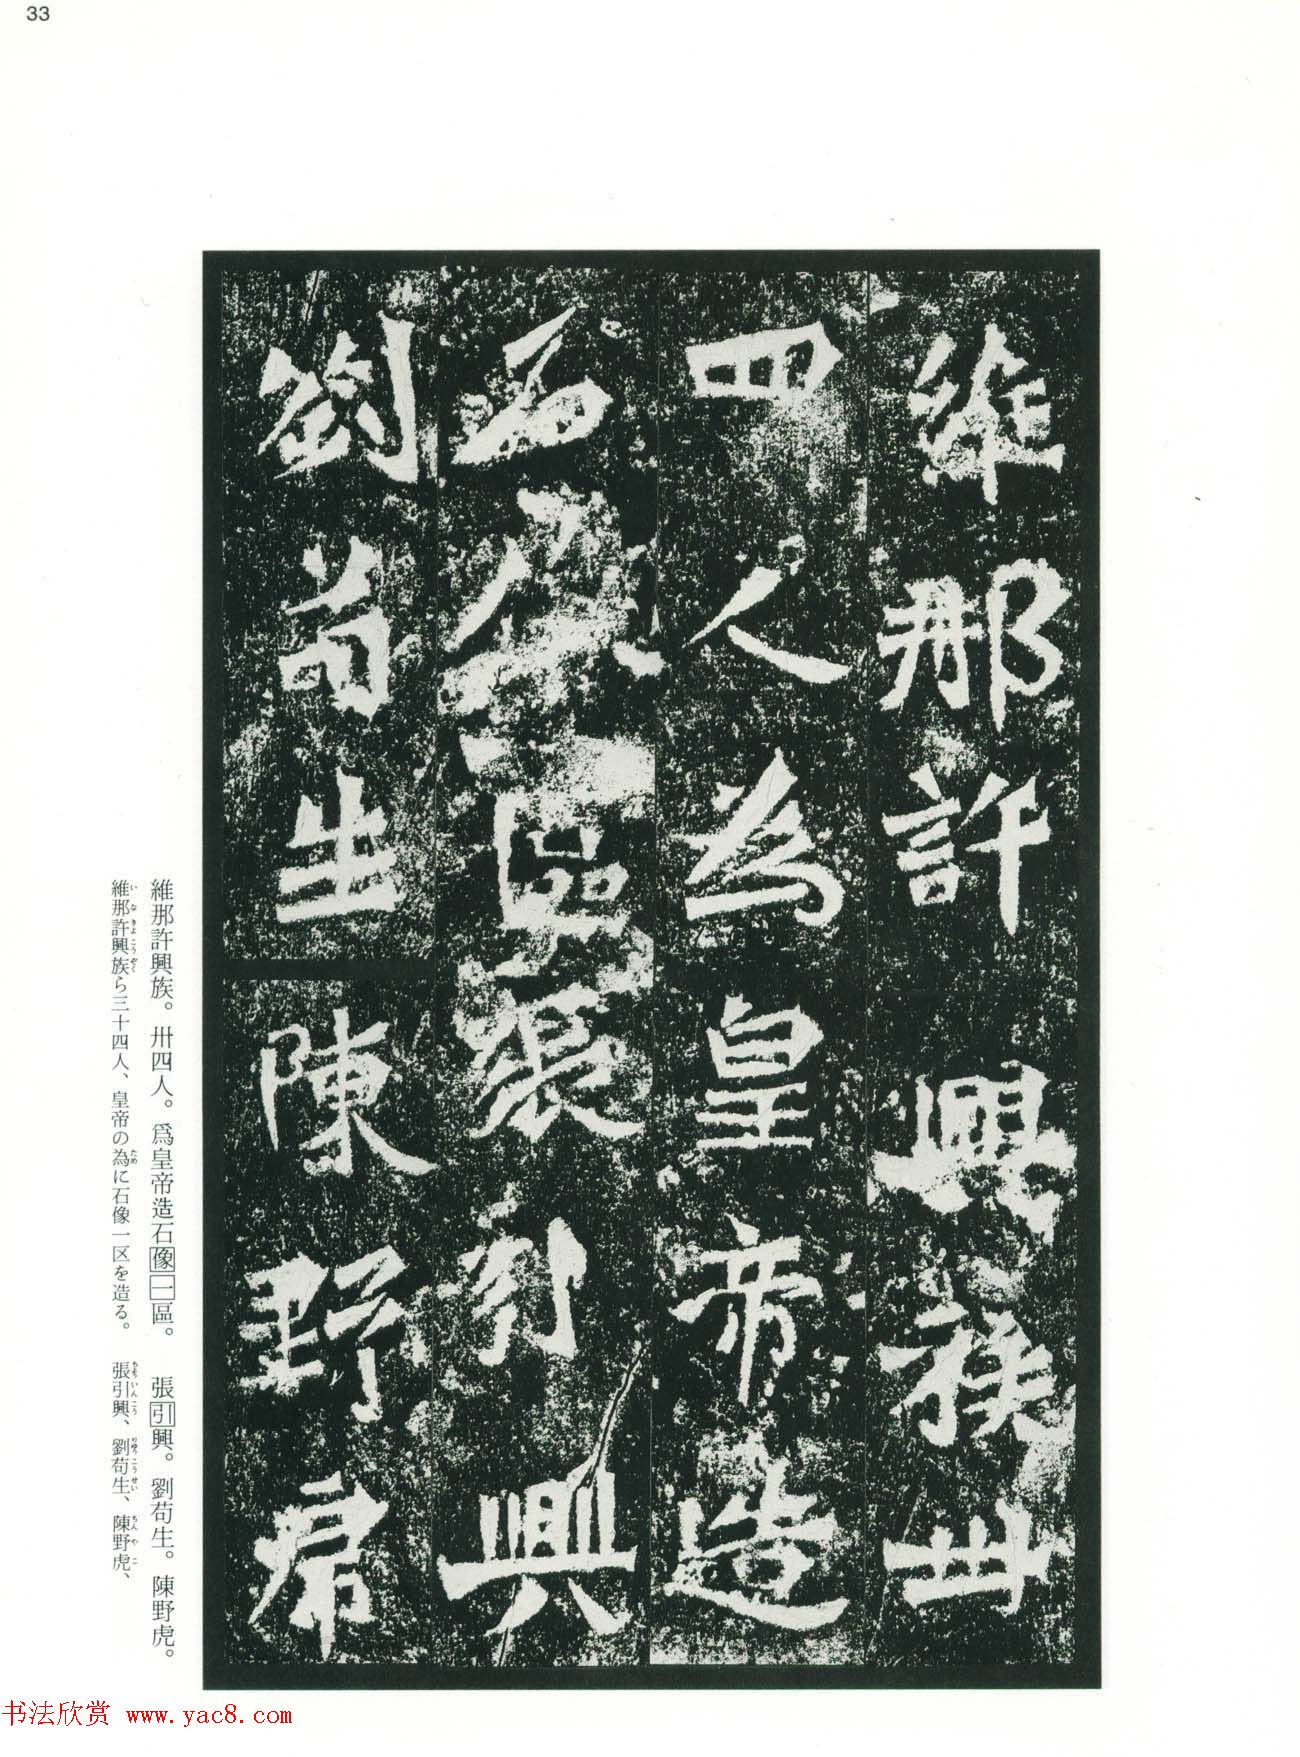 33
維那許興族卅
四人為皇帝造
石區張引興
劉苟生陳野虎
維那許興族。卅四人。爲皇帝造石像一區。 張引興。劉苟生。陳野虎。
維那許興族ら三十四人、皇帝の為に石像一区を造る。 張引興、劉苟生、陳野虎、
书法欣赏 www.yac8.com